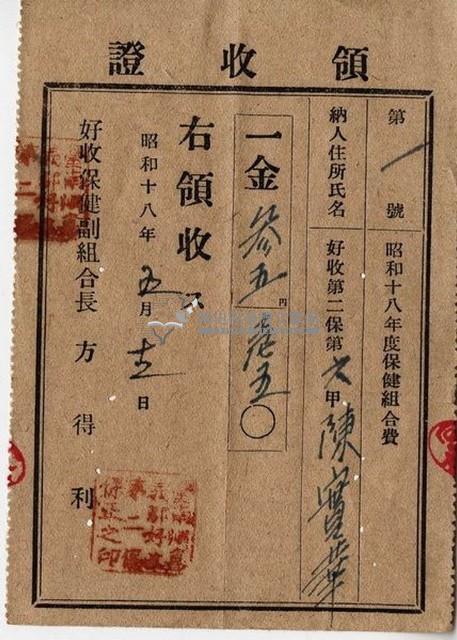 領收證
第一號 昭和十八年度保健組合費
納人住所氏名 好收第二保第六甲 陳寶華
一金 參五円 五〇
右領收ス
昭和十八年 五月 日
好收保健副組合長 方得利